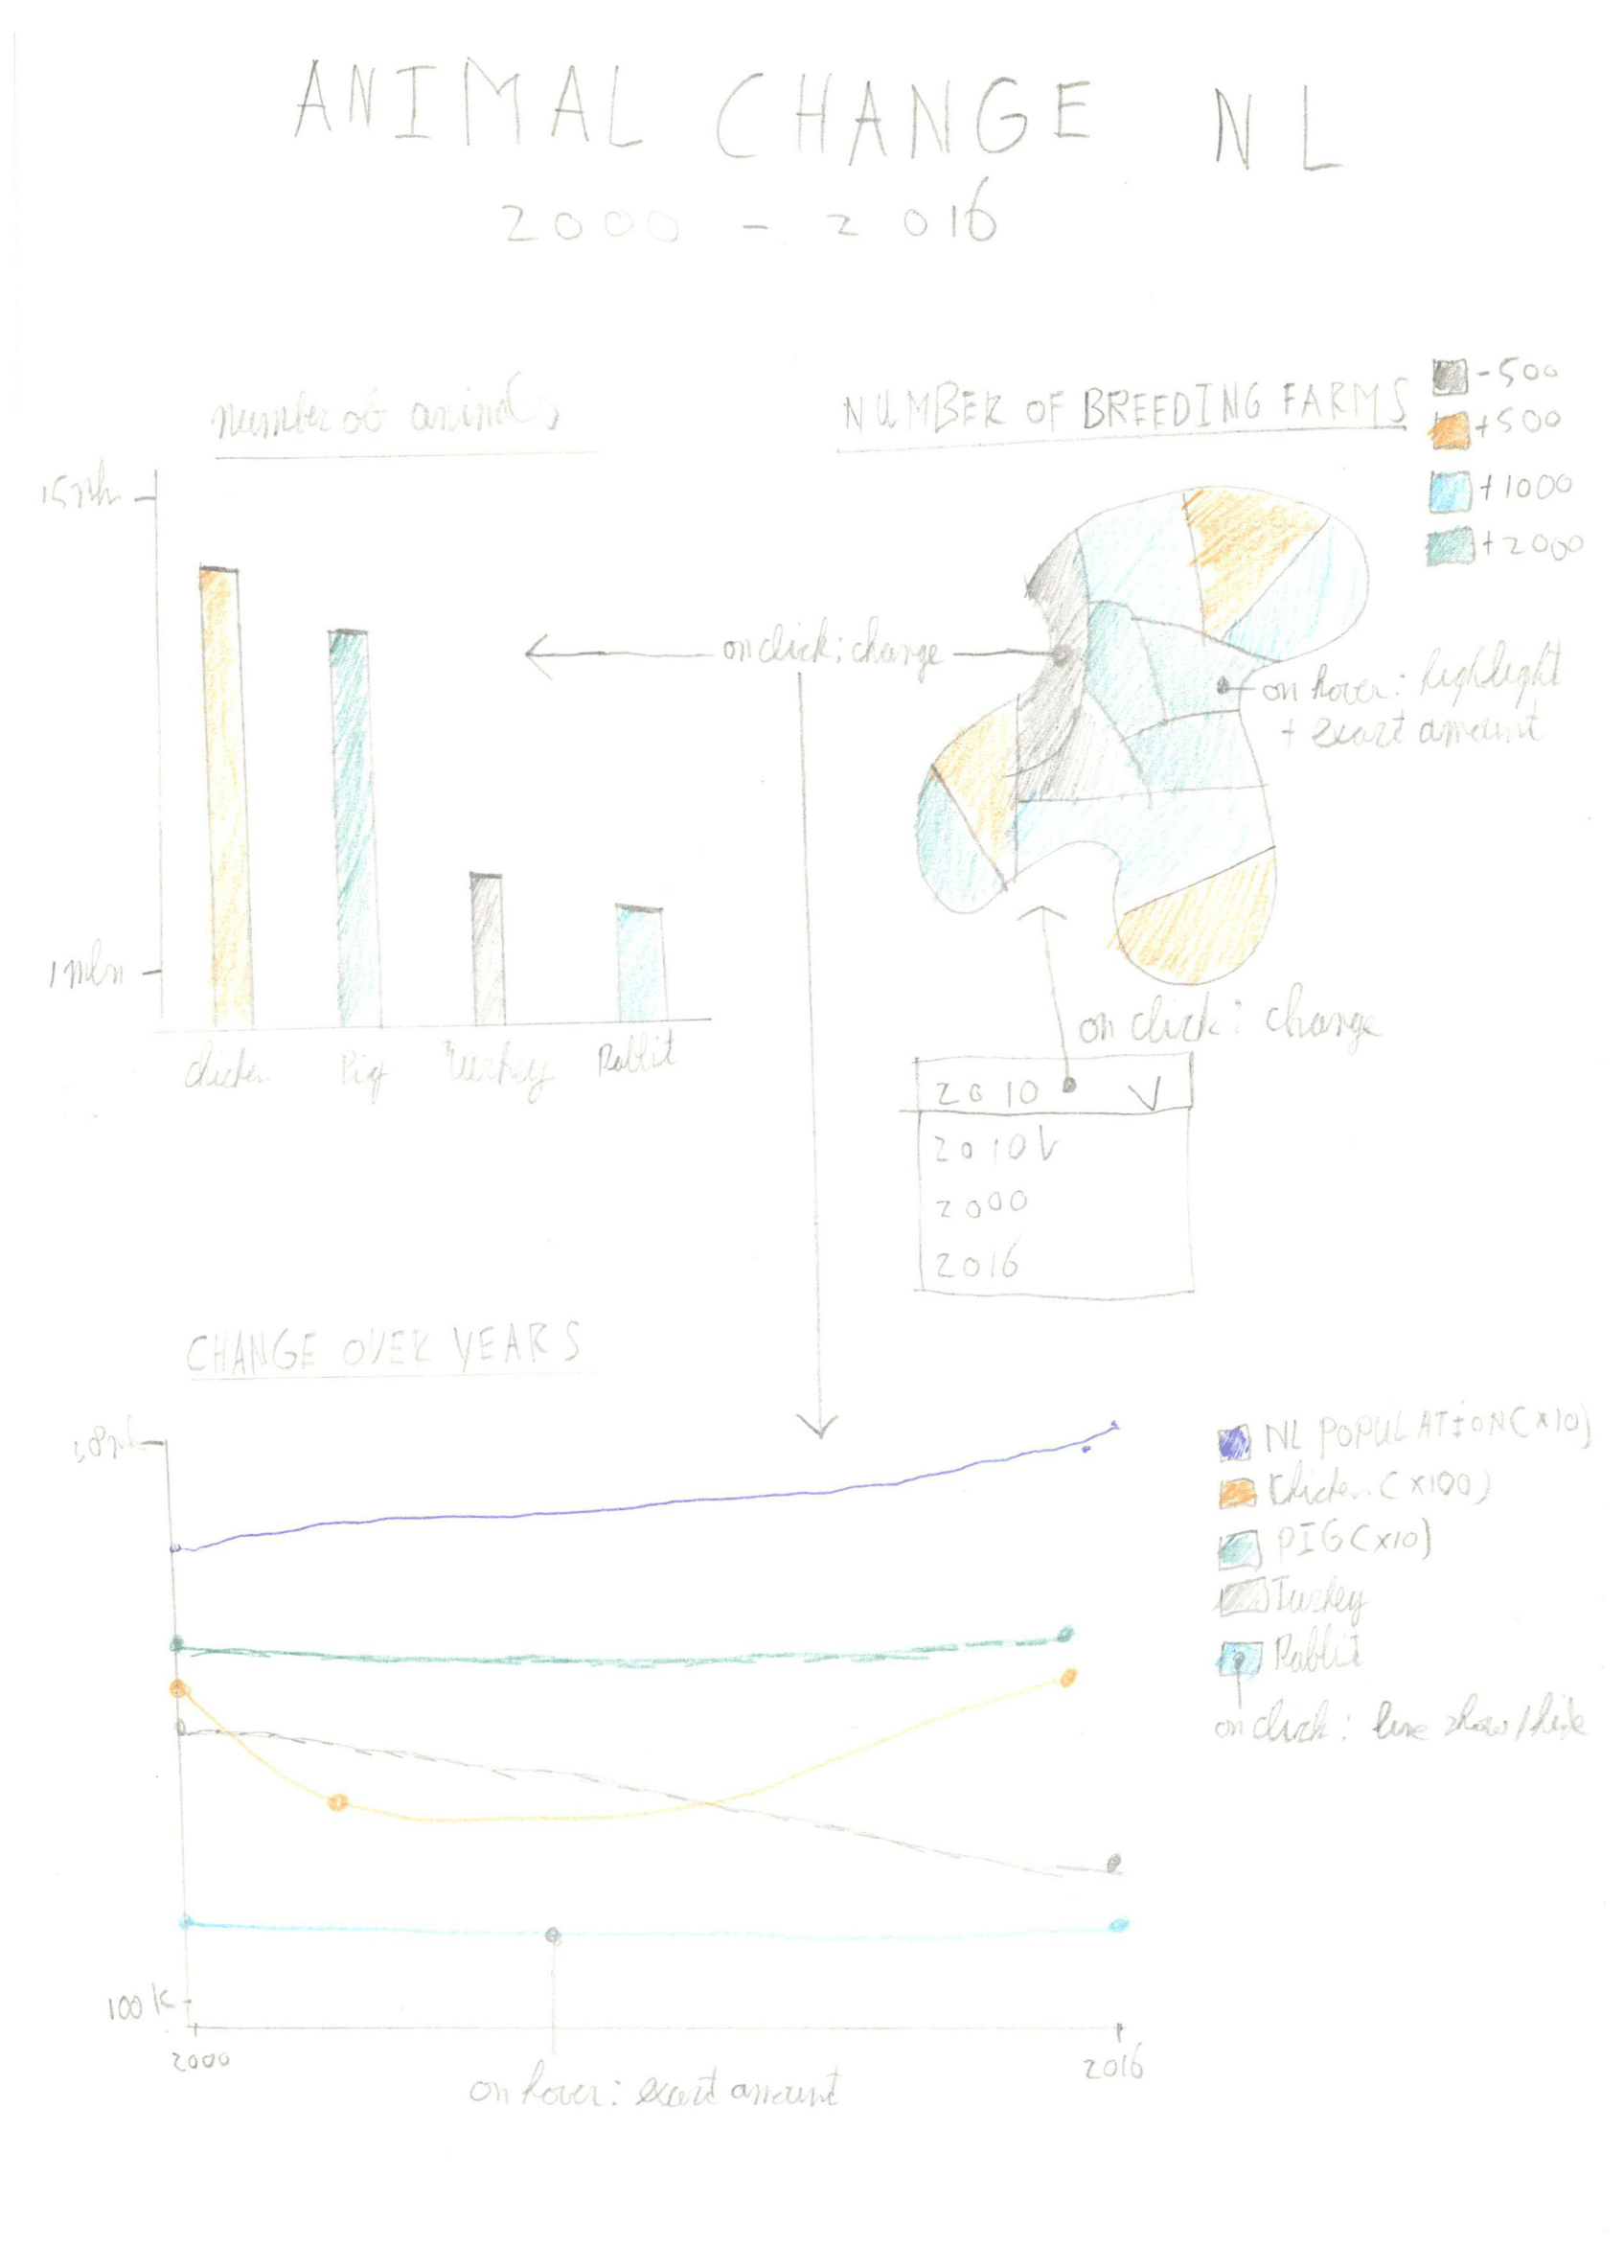 ANIMAL CHANGE NL
2000 - 2016
number of animals
15 mln
1 mln
chicken
Pig
Turkey
Rabbit
NUMBER OF BREEDING FARMS
-500
+500
+1000
+2000
on click: change
on hover: highlight
+ exact amount
on click: change
2010 V
2010 V
2000
2016
CHANGE OVER YEARS
100 K
2000
2016
on hover: exact amount
NL POPULATION (x10)
Chicken (x100)
PIG (x10)
Turkey
Rabbit
on click: line show/hide